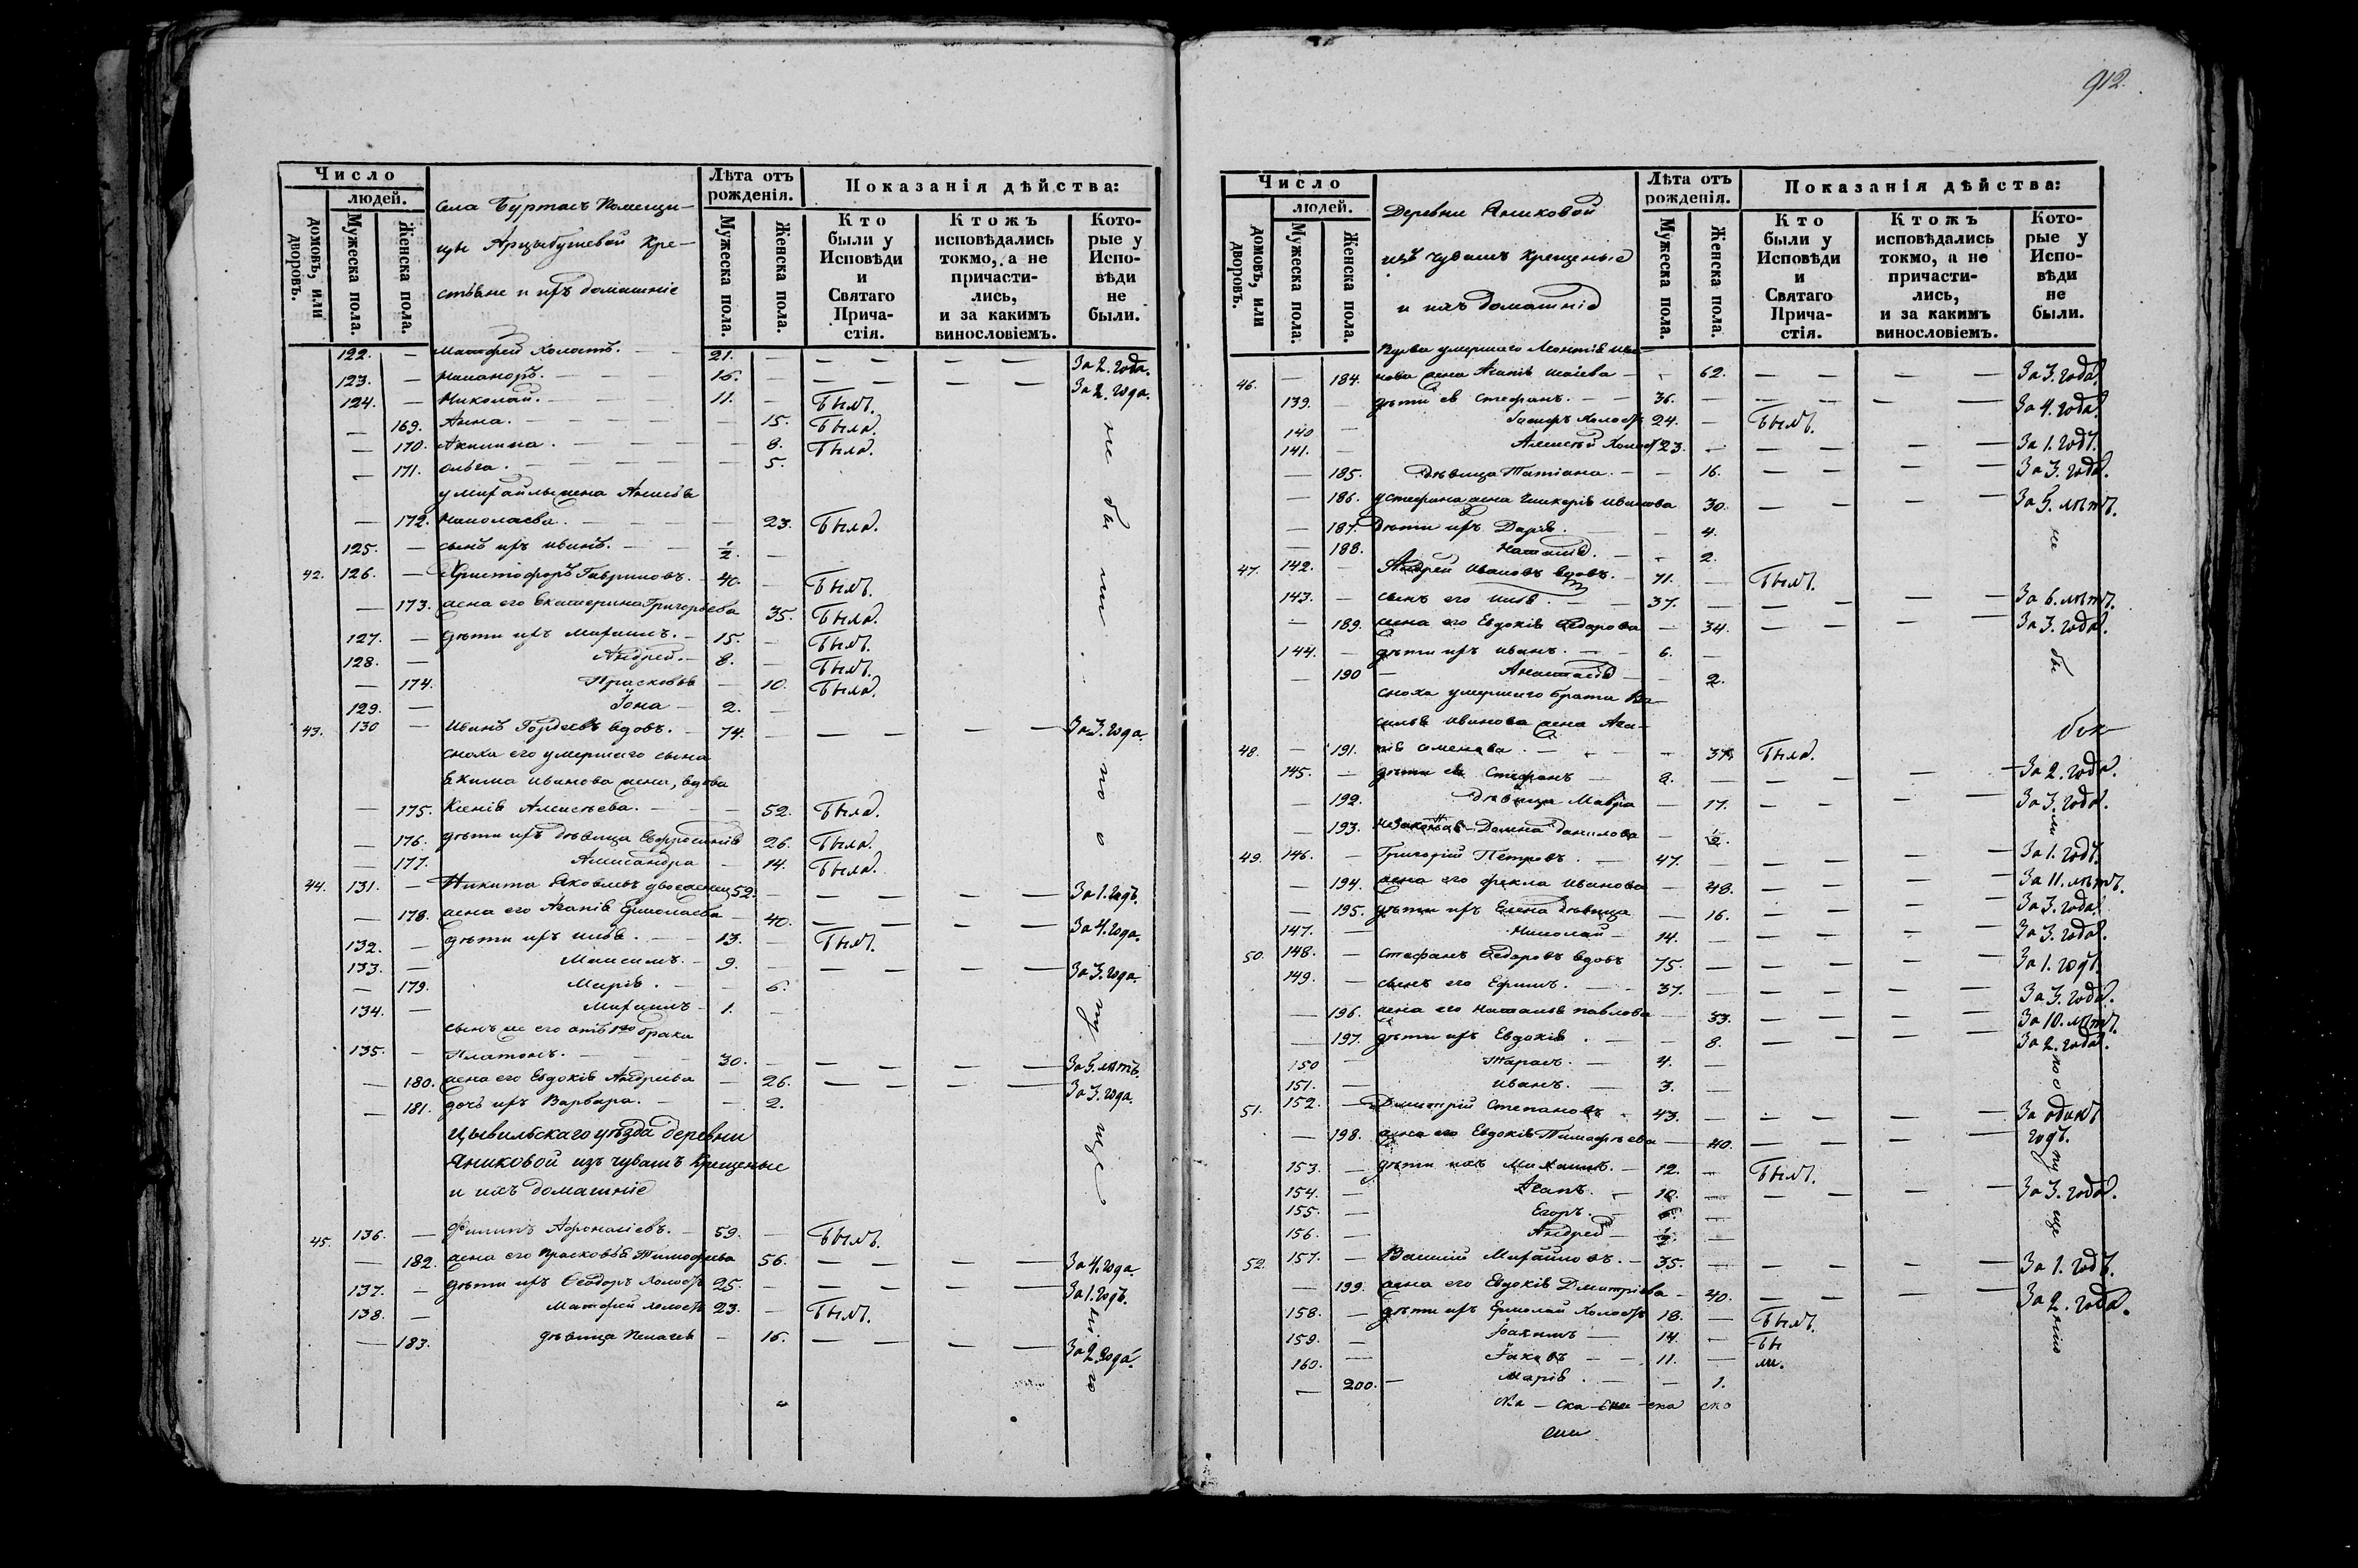 912.
Число
людей.
домовъ, или дворовъ.
Мужеска пола.
Женска пола.
села Буртасъ Помещи-
цы Арцыбушевой Кре-
стьяне и ихъ домашніе
Лѣта отъ рожденія.
Мужеска пола.
Женска пола.
Показанія дѣйства:
Кто были у Исповѣди и Святаго Прича-стія.
Ктожъ исповѣдались токмо, а не причасти-лись, и за какимъ винословіемъ.
Кото-рые у Испо-вѣди не были.
122. — Матфей Холостъ. — — 21. — — — — — За 2. года.
123. — Никаноръ. — — — 16. — — — — — За 2. года.
124. — Николай. — — — 11. — Былъ.
— 169. Анна. — — — — 15. Была.
— 170. Акилина. — — — — 8. Была.
— 171. Ольга. — — — — 5.
у Михайлы жена Анисья
— 172. Николаева. — — — 23. Была.
125. — сынъ ихъ Иванъ. — — 1/2. —
42. 126. — Христофоръ Гавриловъ. — 40. — Былъ.
— 173. жена его Екатерина Григорьева 35. Была.
127. — дѣти ихъ Михаилъ. — 15. — Былъ.
128. — Андрей. — 8. — Былъ.
— 174. Прасковья — 10. Была.
129. — Іона — 2. —
43. 130 — Иванъ Гордеевъ вдовъ. — 74. — — — — — За 3. года.
сноха его умершаго сына
Екима Иванова жена, вдова
— 175. Ксенія Алексѣева. — — — 52. Была.
— 176. дѣти ихъ дѣвица Евфросинія 26. Была.
— 177. Александра — 14. Была.
44. 131. — Никита Яковлевъ двоеженец 52. — — — — — За 1. годъ.
— 178. жена его Агапія Ермолаева — 40. — — — — За 4. года.
132. — дѣти ихъ Илья. — — 13. — Былъ.
133. — Максимъ. — 9. — — — — — За 3. года.
— 179. Марія. — — 6.
134. — Михаилъ — 1. —
сынъ же его отъ 1го брака
135. — Платонъ. — — — 30. — — — — — За 5. лѣтъ.
— 180. жена его Евдокія Андреева — 26. — — — — За 3. года.
— 181. дочь ихъ Варвара. — — 2.
Цывильскаго уѣзда деревни
Яниковой изъ чувашъ Крещеные
и ихъ домашніе
45. 136. — Филипъ Афонасіевъ. — 59. — Былъ.
— 182. жена его Прасковья Тимофеева 56. — — — — За 4. года.
137. — дѣти ихъ Ѳеодоръ Холостъ 25. — — — — — За 1. годъ.
138. — Матфей холостъ 23. — Былъ.
— 183. дѣвица Пелагея — 16. — — — — За 2. года.
не были по опущенію
Число
людей.
домовъ, или дворовъ.
Мужеска пола.
Женска пола.
Деревни Яниковой
изъ чувашъ Крещеные
и ихъ домашніе
Лѣта отъ рожденія.
Мужеска пола.
Женска пола.
Показанія дѣйства:
Кто были у Исповѣди и Святаго Прича-стія.
Ктожъ исповѣдались токмо, а не причасти-лись, и за какимъ винословіемъ.
Кото-рые у Испо-вѣди не были.
умершаго Леонтія Ива-
46. — 184. нова жена Агапія — — 62. — — — — За 3. года.
139. — дѣти ея Стефанъ. — — 36. — — — — — За 4. года.
140 — Холостъ 24. — Былъ.
141. — Алексѣй Холост 23. — — — — — За 1. годъ.
— 185. дѣвица Татіана. — — 16. — — — — За 3. года.
— 186. у Стефана жена Гликерія Иванова 30. — — — — За 5. лѣтъ.
— 187. Дѣти ихъ Дарія. — — 4.
— 188. Наталія. — — 2.
47. 142. — Андрей Ивановъ вдовъ. — 71. — Былъ.
143. — сынъ его Илья. — — 37. — — — — — За 6. лѣтъ.
— 189. жена его Евдокія Ѳедорова — 34. — — — — За 3. года.
144. — дѣти ихъ Иванъ. — — 6. —
— 190 — Анастасія — — 2.
сноха умершаго брата Ва-
силья Иванова жена Ага-
48. — 191. пія Семенова. — — — 37. Была.
145. — дѣти ея Стефанъ — 8. — — — — — За 2. года.
— 192. дѣвица Мавра — 17. — — — — За 3. года.
— 193. Домна Данилова — 1/2.
49. 146. — Григорій Петровъ. — 47. — — — — — За 1. годъ.
— 194. жена его Фекла Иванова — 48. — — — — За 11. лѣтъ.
— 195. дѣти ихъ Елена дѣвица — 16. — — — — За 3. года.
147. — Николай — 14. — — — — — За 3. года.
50. 148. — Стефанъ Ѳедоровъ вдовъ 75. — — — — — За 1. годъ.
149. — сынъ его Ефимъ. — — 37. — — — — — За 3. года.
— 196. жена его Наталья Павлова — 33. — — — — За 10. лѣтъ.
— 197. дѣти ихъ Евдокія. — — 8. — — — — За 2. года.
150 — Тарасъ. — 4. —
151. — Иванъ. — 3. —
51. 152. — Димитрій Степановъ. — 43. — — — — — За одинъ годъ.
— 198. жена его Евдокія Тимофѣева — 40. — — — —
153. — дѣти ихъ Михаилъ. — 12. — Былъ.
154. — Агапъ. — 10. — — — — — За 3. года.
155. — Егоръ. — 6. —
156. — Андрей — 1/2. —
52. 157. — Василій Михайловъ. — 35. — — — — — За 1. годъ.
— 199. жена его Евдокія Дмитріева — 40. — — — — За 2. года.
158. — дѣти ихъ Ермолай Холостъ 18. — Былъ.
159. — Іоакимъ — 14. — Бы
160. — Іаковъ — — 11. — ли.
— 200. — Марія. — — 1.
не бы ли по опущенію